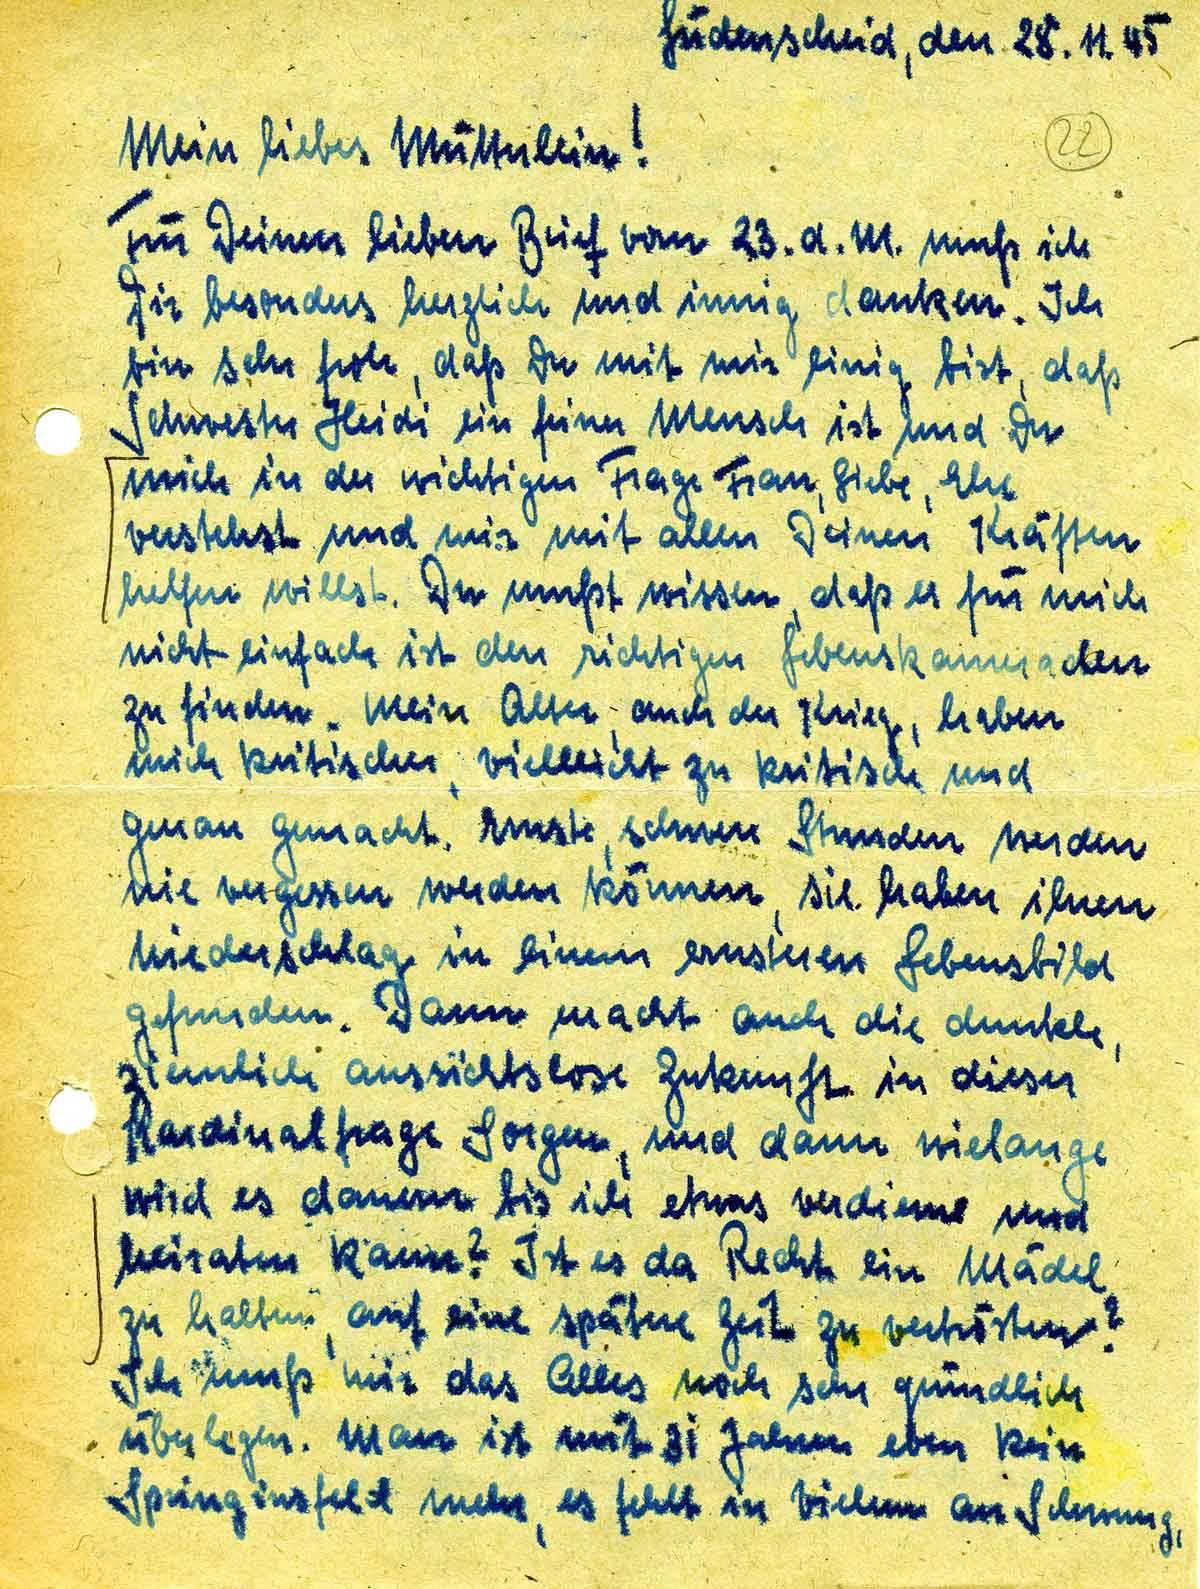 Lüdenscheid, den 28.11.45
22
Mein liebes Mütterlein!
Für Deinen lieben Brief vom 23. d. M. muß ich
Dir besonders herzlich und innig danken. Ich
bin sehr froh, daß Du mit mir einig bist, daß
Schwester Heidi ein feiner Mensch ist und Du
mich in der wichtigen Frage Frau, Liebe, Ehe
verstehst und mir mit allen Deinen Kräften
helfen willst. Du mußt wissen, daß es für mich
nicht einfach ist den richtigen Lebenskameraden
zu finden. Mein Alter, auch der Krieg, haben
mich kritischer, vielleicht zu kritisch und
genau gemacht. Ernste, schwere Stunden werden
nie vergessen werden können, sie haben ihren
Niederschlag in einem ernsteren Lebensbild
gefunden. Dann macht auch die dunkle,
ziemlich aussichtslose Zukunft in dieser
Kardinalfrage Sorgen, und dann wielange
wird es dauern bis ich etwas verdiene und
heiraten kann? Ist es da Recht ein Mädel
zu halten, auf eine spätere Zeit zu vertrösten?
Ich muß mir das Alles noch sehr gründlich
überlegen. Man ist mit 31 Jahren eben kein
Springinsfeld mehr, es fehlt in Vielem an Schwung,